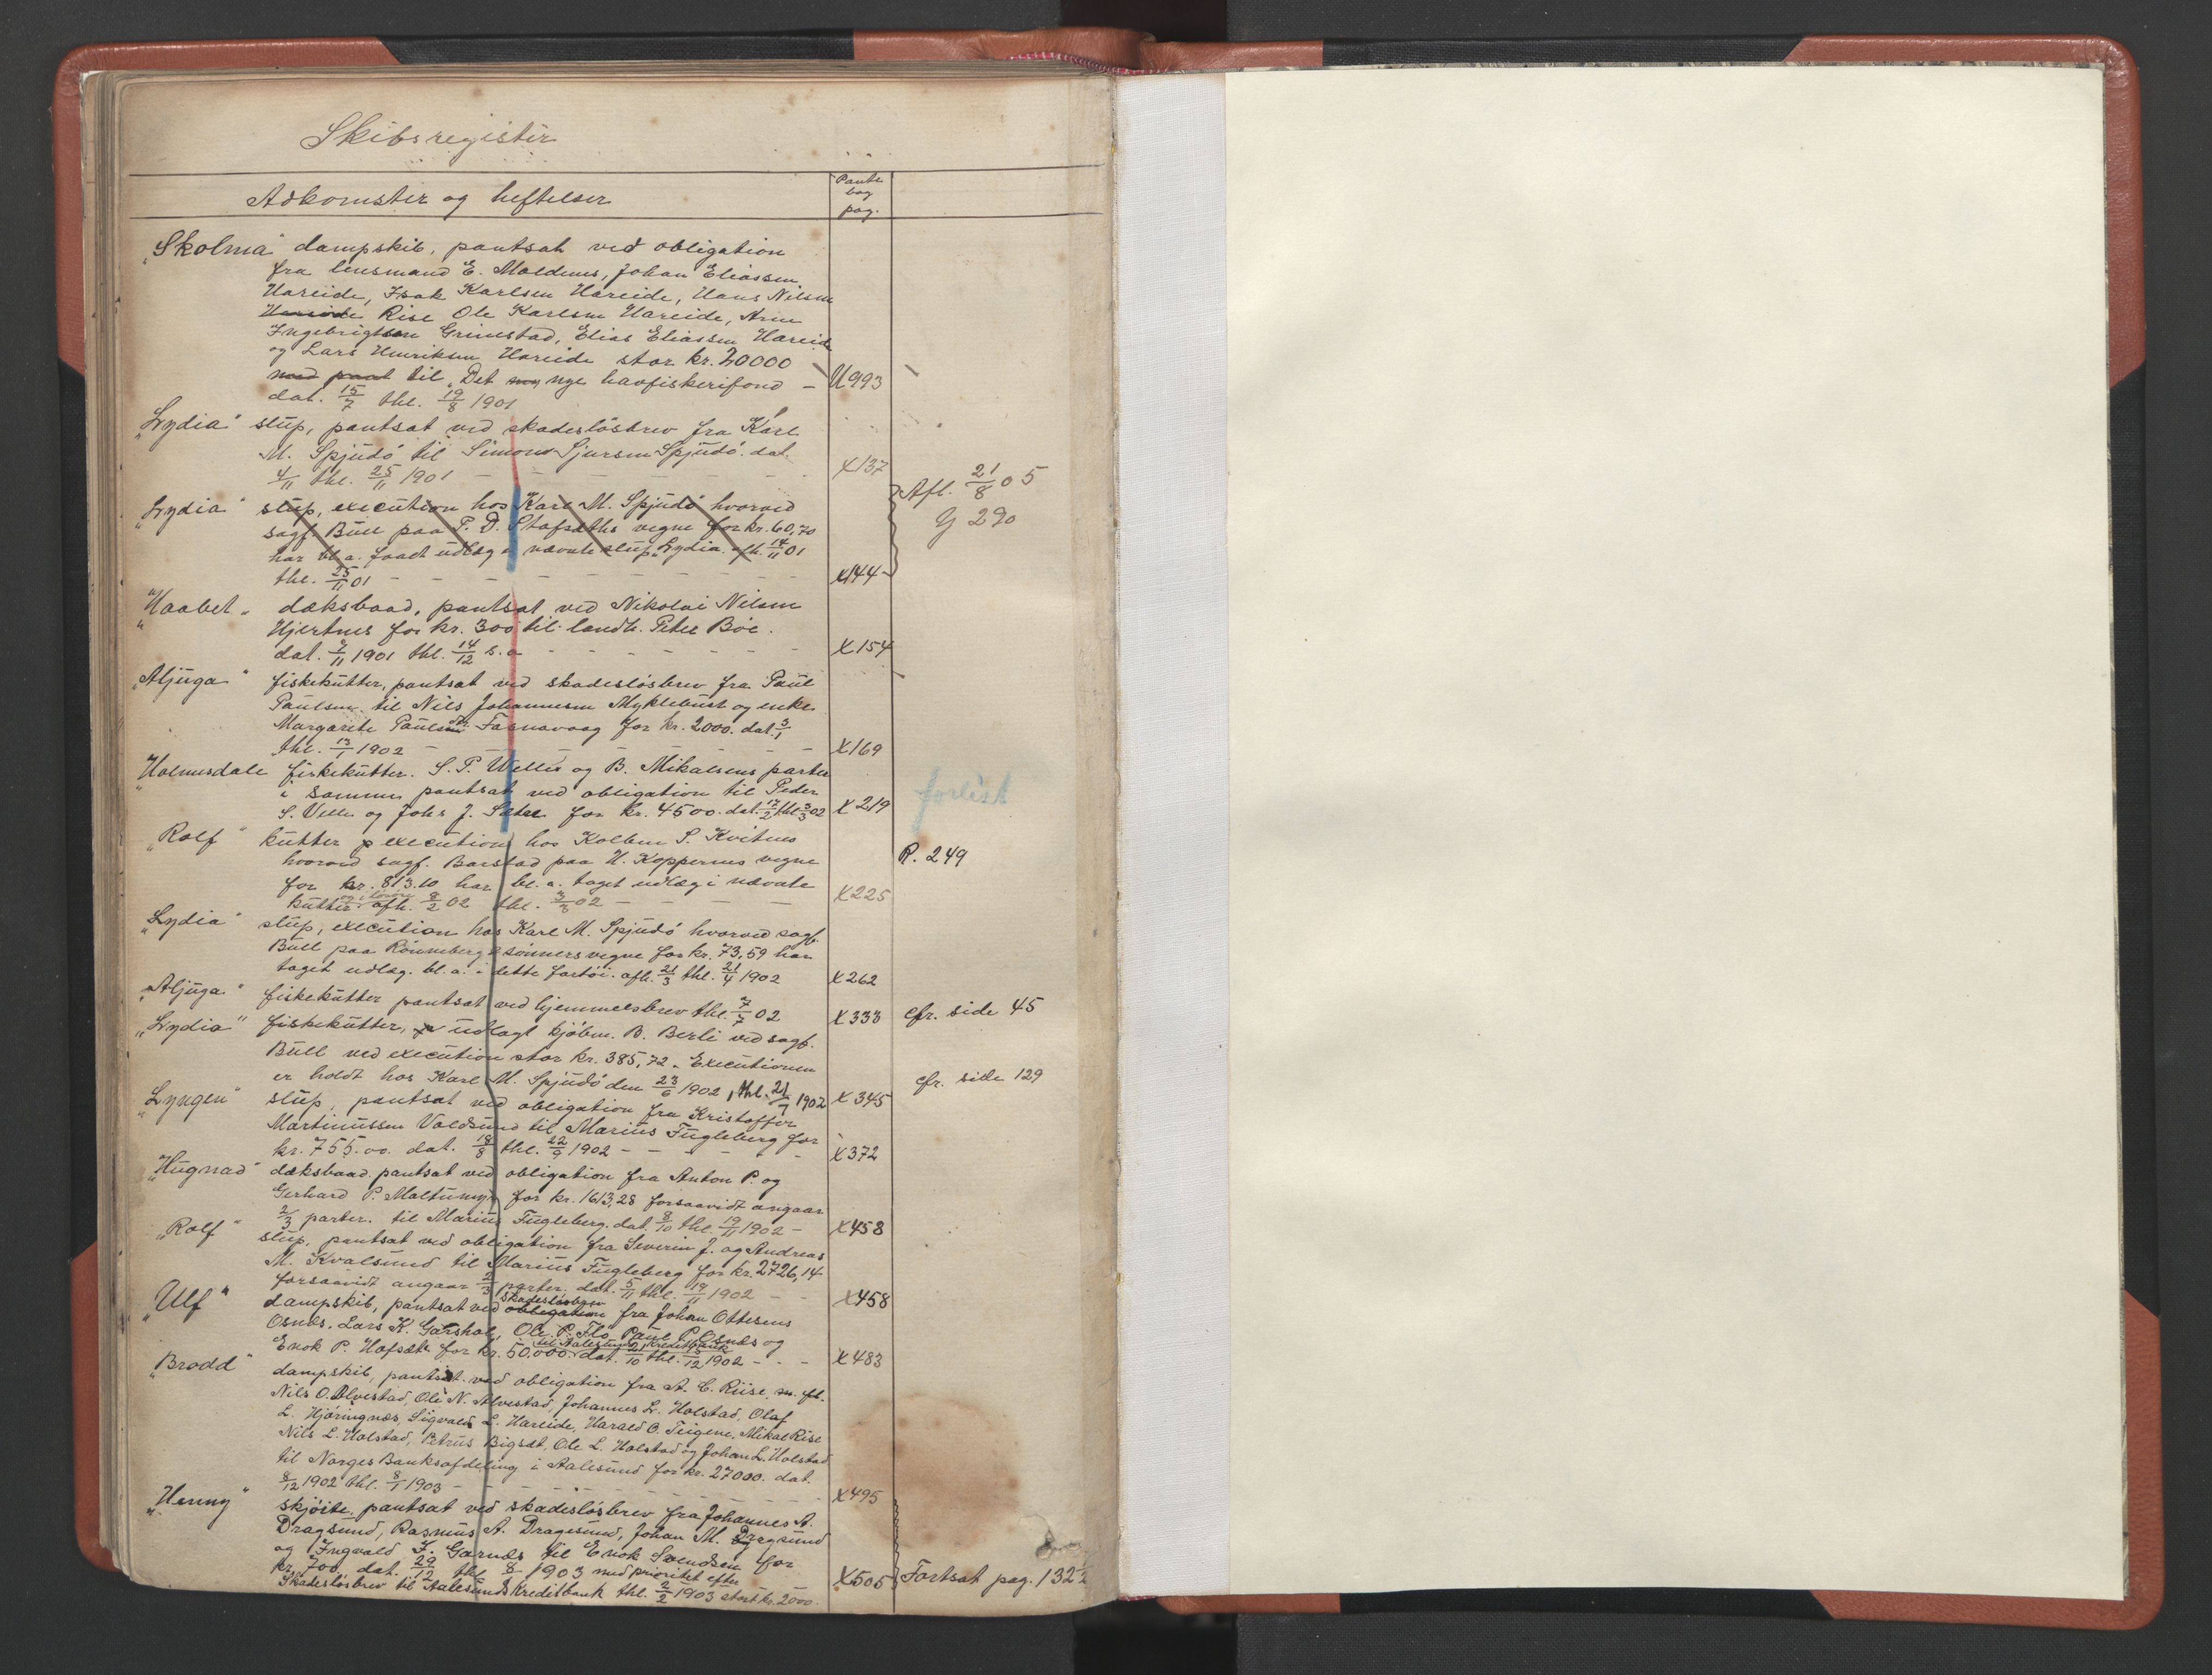 Skibsregister
Adkomster og heftelser
Pante
bog
pag.
„Skolma" dampskib, pantsat ved obligation
fra lensmand E. Moldenes, Johan Eliassen
Hareide, Isak Karlsen Hareide, Hans Nilsen
Hareide Rise Ole Karlsen Hareide, Arin
Ingebrigtsen Grimstad, Elias Eliassen Hareide
og Lars Henriksen Hareide stor kr. 20000
med pant til „Det ny nye havfiskerifond – U993
dat. 15/7 thl. 19/8 1901
„Lydia" slup, pantsat ved skadesløsbrev fra Karl
M. Spjudø til Simon Sjursen Spjudø. dat.
4/11 thl. 25/11 1901 – – – – X137
„Lydia" slup, execution hos Karl M. Spjudø hvorved
sagf. Bull paa P. D. Stafseths vegne for kr. 60,70
har bl. a. faaet udlæg i nævnte slup „Lydia. afh. 14/11 01
thl. 25/11 01 – – – – X144
Afl. 21/8 05
Y 290
„Haabet" dæksbaad, pantsat ved Nikolai Nilsen
Hjertnes for kr. 300 til landh. Peter Böe.
dat. 7/11 1901 thl. 14/12 s. a – – – X154
„Aljuga" fiskekutter, pantsat ved skadesløsbrev fra Paul
Paulsen til Nils Johannesen Myklebust og enke
Margarete Paulsen Fosnavaag for kr. 2000. dat. 3/1
thl. 13/1 1902 – – – – X169
„Holmesdale fiskekutter. S. P. Welle og B. Mikalsens parter
i samme pantsat ved obligation til Peder
S. Velle og Johs J. Sætre for kr. 4500. dat. 17/2 thl 3/3 02 X219
forlist
„Rolf" kutter p execution hos Kolben S. Kvitnes
hvorved sagf. Barstad paa H. Koppernes vegne
for kr. 813.10 har bl. a. taget udlæg i nævnte
kutter afh. 8/2 02 thl. 3/3 02 – – – X225
R. 249
„Lydia" slup, execution hos Karl M. Spjudø hvorved sagf.
Bull paa Rønneberg & sønners vegne for kr. 73,59 har
taget udlæg. bl. a. i dette fartøi. afh. 21/3 thl. 21/4 1902 X262
„Aljuga" fiskekutter pantsat ved hjemmelsbrev thl. 7/7 02 X333 cfr. side 45
„Lydia" fiskekutter, udlagt kjøbm. B. Berli ved sagf.
Bull ved execution stor kr. 385,72. Executionen
er holdt hos Karl M. Spjudø den 23/6 1902, thl. 21/7 1902 X345 cfr. side 129
„Lyngen" slup, pantsat ved obligation fra Kristoffer
Martinussen Voldsund til Marius Fugleberg for
kr. 755.00. dat. 18/8 thl. 22/9 1902 – – – X372
„Hugnad" dæksbaad pantsat ved obligation fra Anton P. og
Gerhard P. Moltumyr for kr. 1613,28 forsaavidt angaar
2/3 parter. til Marius Fugleberg. dat. 8/10 thl. 19/11 1902 – X458
„Rolf" slup, pantsat ved obligation fra Severin J. og Andreas
M. Kvalsund til Marius Fugleberg for kr. 2726,14
forsaavidt angaar 2/3 parter. dat. 5/11 thl. 19/11 1902 – – X458
skadesløsbrev
„Ulf" dampskib, pantsat ved obligation fra Johan Ottesens
Osnes, Lars K. Garshol, Ole P. Flø, Paul P. Osnes og
til Aalesunds Kreditbank
Enok P. Hofsæth for kr. 50.000. dat. 21/10 thl. /12 1902 – – X483
„Brodd" dampskib, pantsat ved obligation fra A. C. Riise, m. fl.
Nils O. Alvestad, Ole N. Alvestad, Johannes L. Holstad, Olaf
L. Hjøringnes, Sigvald L. Hareide, Harald O. Teigene, Mikal Rise
Nils L. Holstad, Petrus Bigset, Ole L. Holstad og Johan L. Holstad
til Norges Banksafdeling i Aalesund for kr. 27000. dat.
8/12 1902 thl. 8/1 1903 – – – – X495
„Henny" skjøite, pantsat ved skadesløsbrev fra Johannes A.
Dragsund, Rasmus A. Dragesund, Johan M. Dragsund
og Ingvald K. Garnes til Enok Svendsen for
kr. 700, dat. 29/12 thl. 8/1 1903 med prioritet efter X505 Fortsat pag. 132
Skadesløsbrev til Aalesunds Kreditbank thl. 2/2 1903 stort kr. 2000.